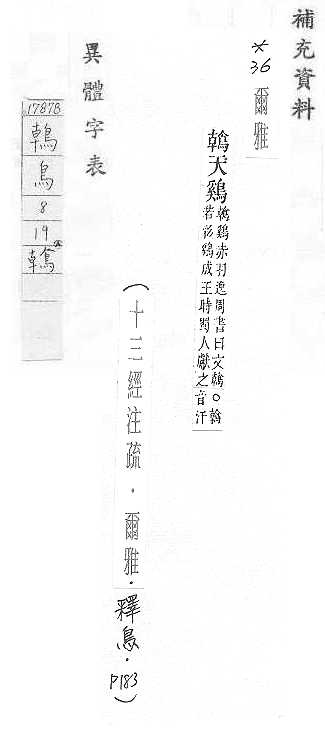 補充資料
*36 爾雅
鶾天鷄 鶾鷄赤羽逸周書曰文鶾○鶾
若彩鷄成王時蜀人獻之音汗
(十三經注疏.爾雅.釋鳥.P183)
異體字表
17878
鶾
鳥
8
19